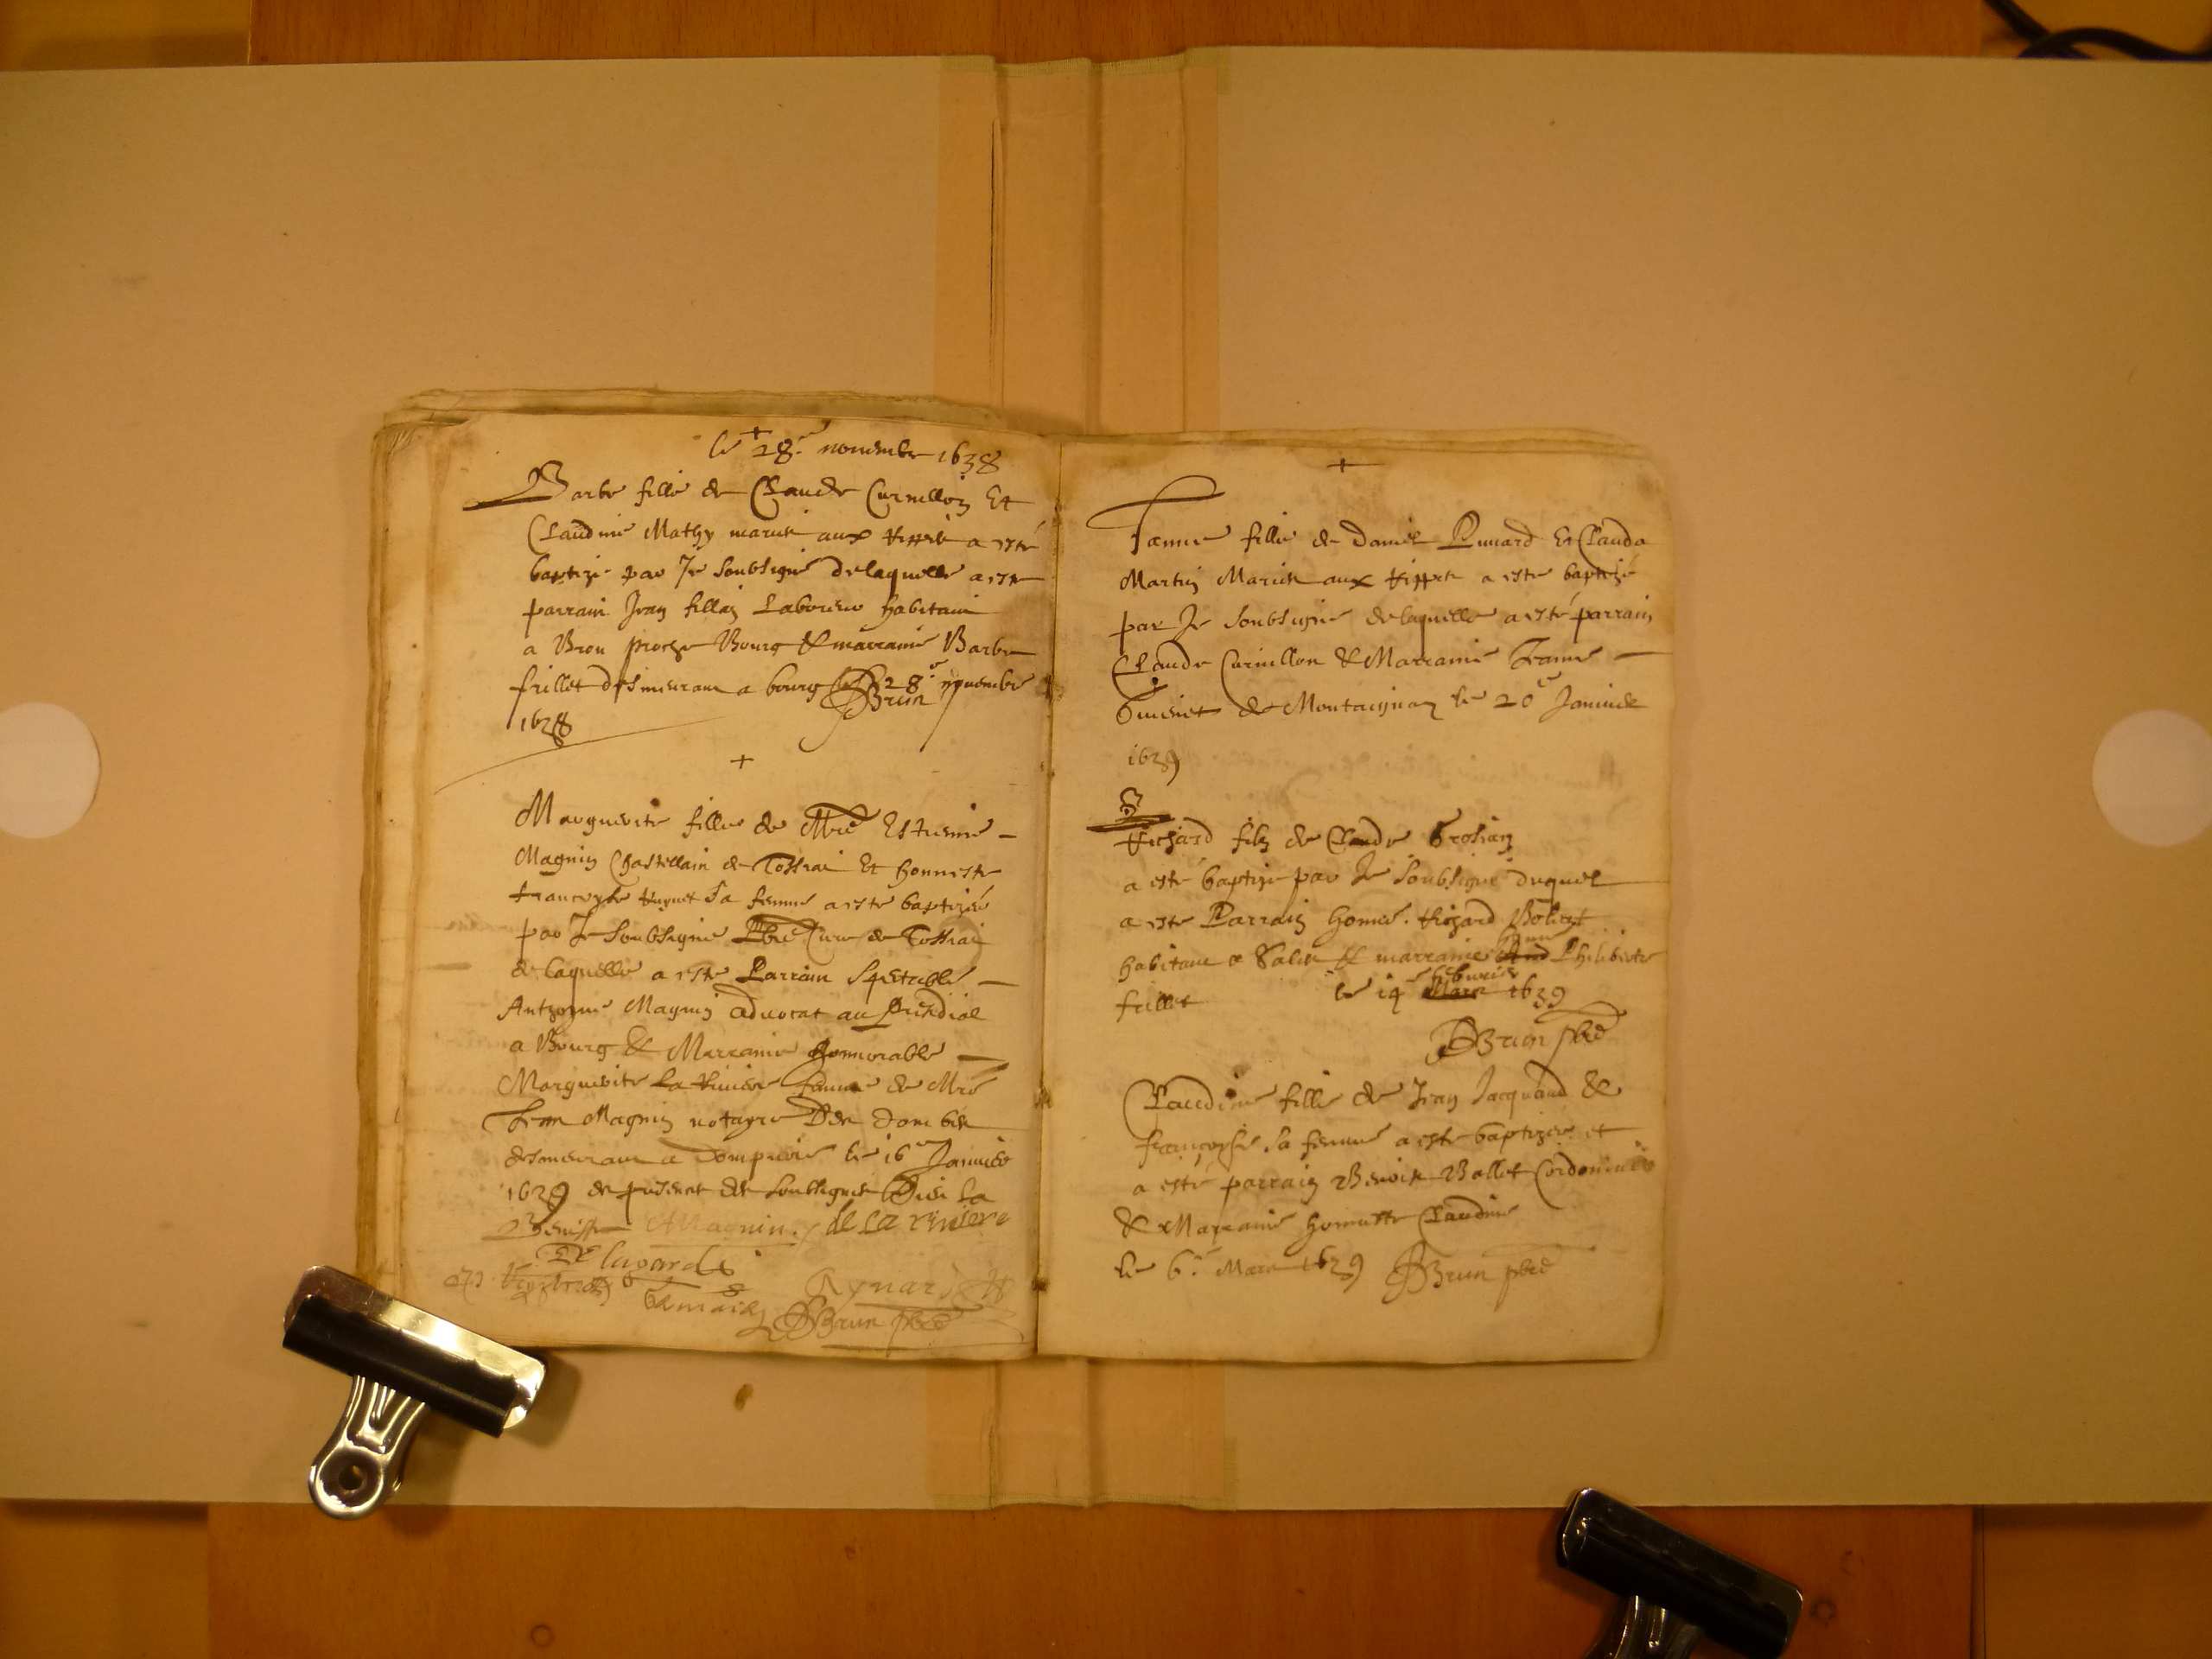 le 28e nouembre 1638
Barbe fille de Claude Curnillon Et
Claudine Mathy mariés aux a esté
baptizé par Je soubsigné delaquelle a esté
parrain Jean fillion Laboureur habitant
a Brou proche Bourg & marraine Barbe
frillet demeurant a bourg le 28e nouembre
1638
DBrun
+
Marguerite fille de Mre Estienne
Magnin Chastellain de Tossiat Et honneste
francoyse huguet sa femme a esté baptizée
par Je Soubsigné Pbre Cure de Tossiat
delaquelle a esté Parrain Spectable
Anthoyne Magnin aduocat au presidial
a Bourg & Marraine honnorable
Marguerite La Riuiere famme de Mre
Jean Magnin notayre
demeurant a le 16e Januier
1639 de present les soubsignés Dieu la
Benisse AMagnin. de La riuiere
Aynard
DBrun pbre
+
Jeanne fille de Daniel et Clauda
Martin Mariés aux a esté baptizé
par Je soubsigné delaquelle a esté parrain
Claude Curnillon & Marraine Jeanne
de Montaignat le 20e Januier
1639
Richard filz de Claude
a esté baptizé par Je soubsigné duquel
a esté Parrain honne. Richard
habitant a & marraine Philiberte
frillet le 14e feburier 1639
DBrun pbre
Claudine fille de Jean Jacquand &
françoyse sa femme a esté baptizée et
a esté parrain Benoist Ballet Cordonnier
& Marraine honneste Claudine
le 6e Mars 1639 DBrun pbre